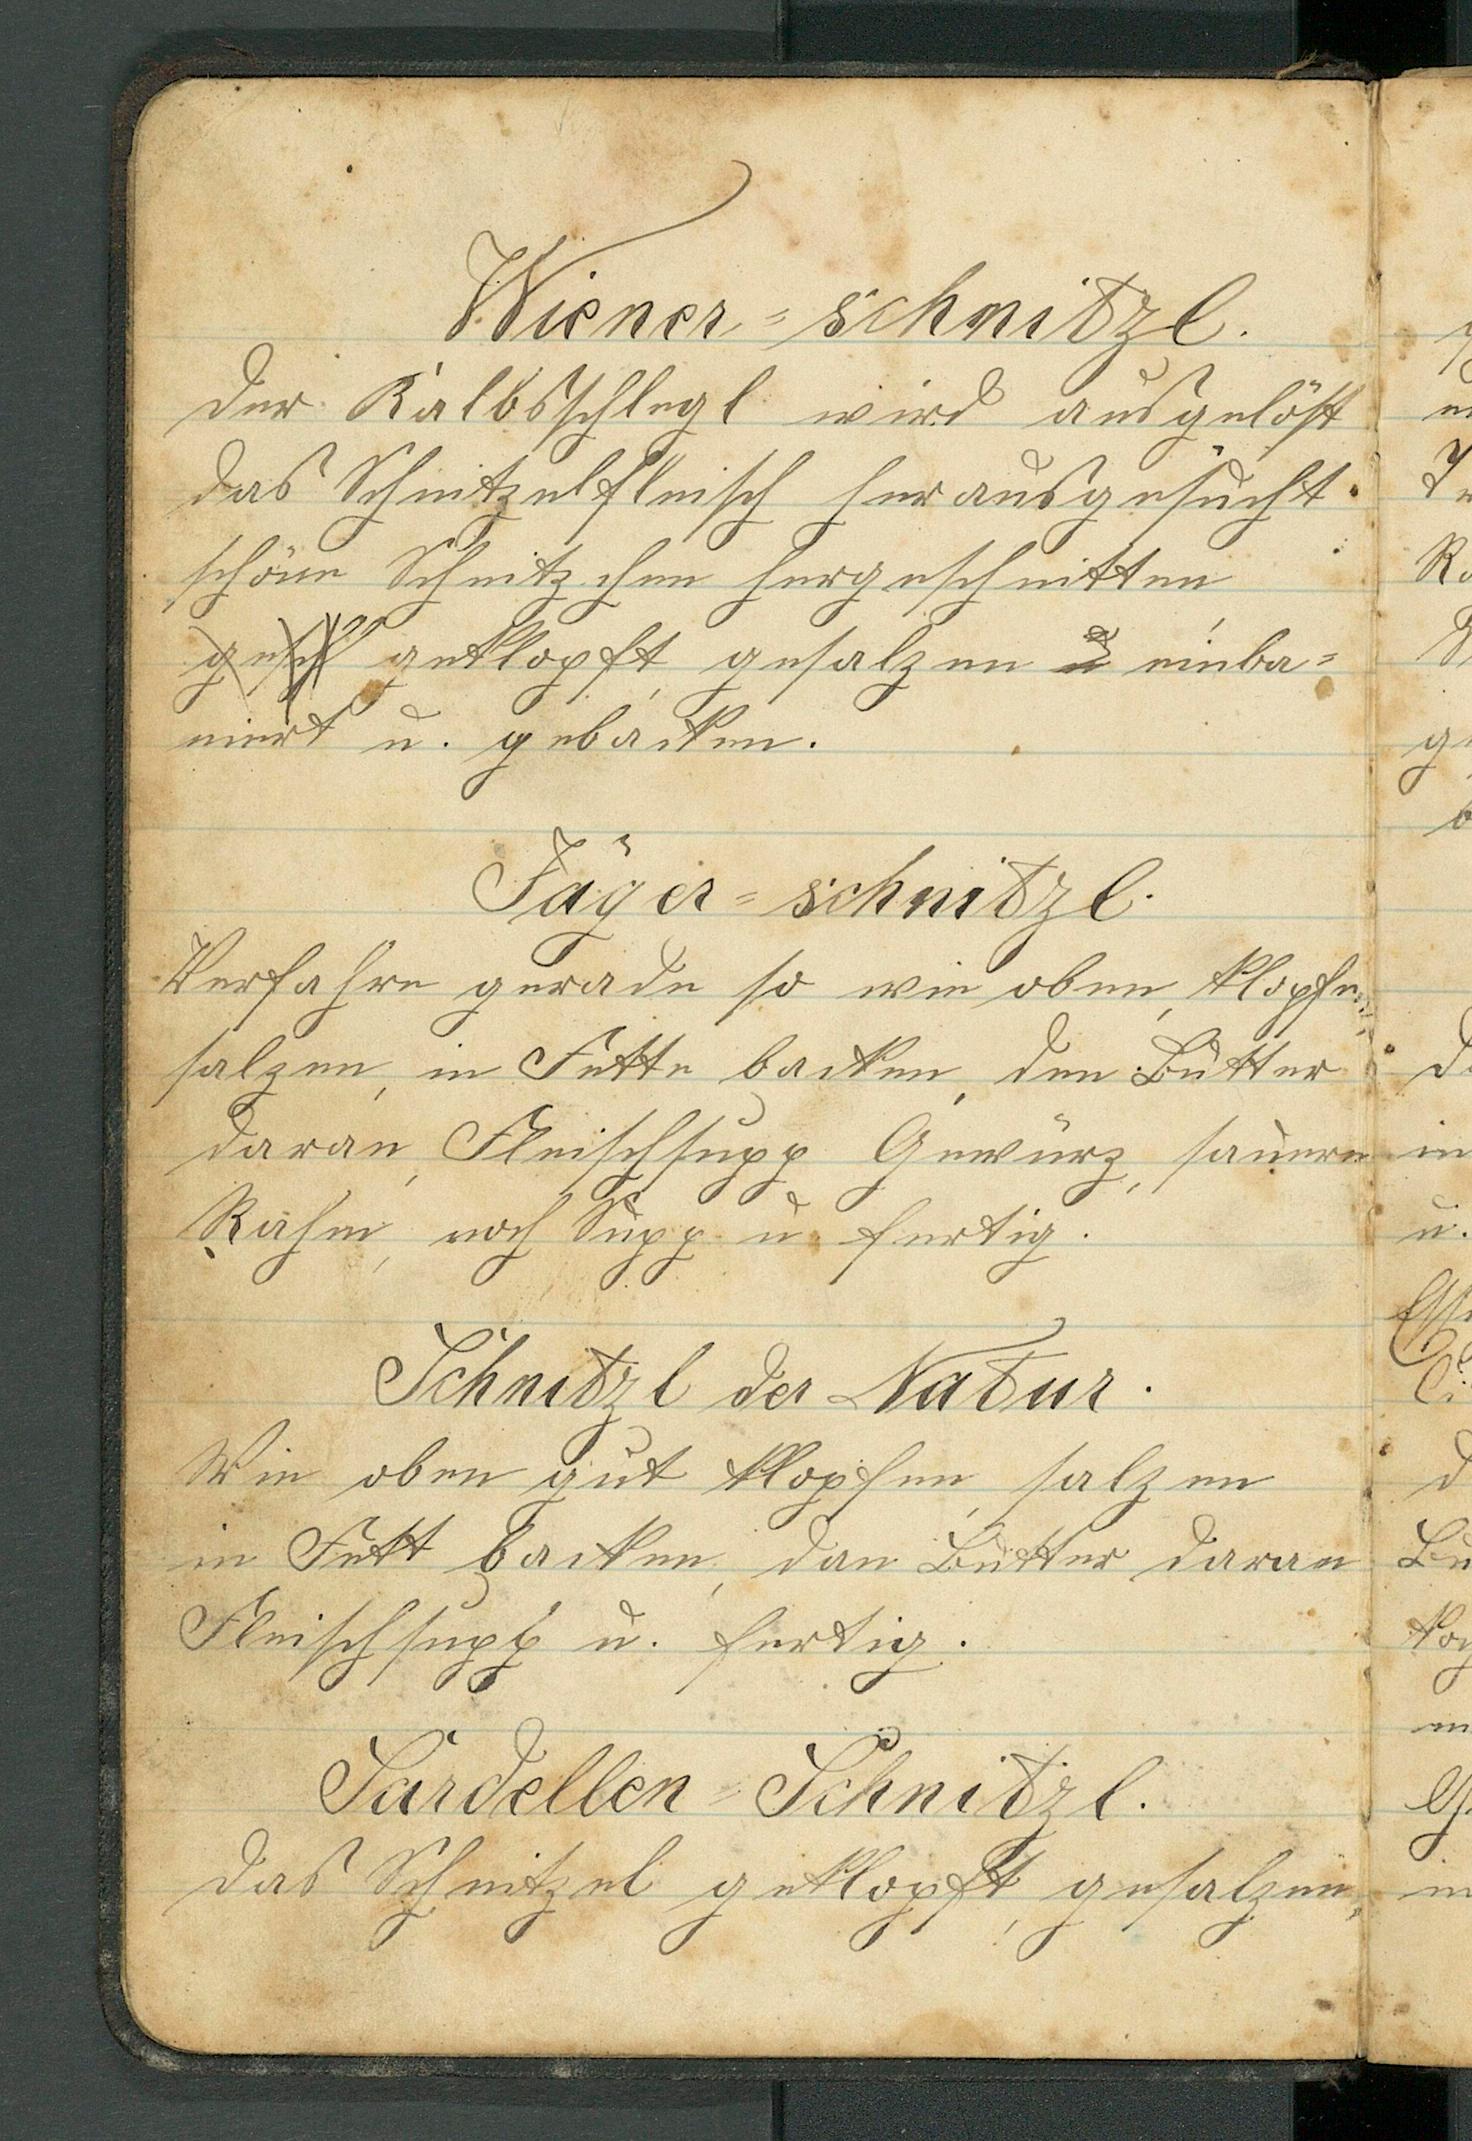 Wiener=schnitzl.
Der Kalbsschlegl wird ausgelöst
das Schnitzelfleisch herausgesucht
schöne Schnitzchen hergeschnitten
gesch geklopft, gesalzen u einba=
niert u. gebacken.
Jäger=schnitzl.
Verfahre gerade so wie oben, klopfe,
salzen, in Fette backen, den Butter
daran, Fleischsupp Gewürz, sauern
Rahm, noch Supp u fertig.
Schnitzl der Natur.
Wie oben gut klopfen, salzen
in Fett backen, dan Butter daran
Fleischsupp u. fertig.
Sardellen=Schnitzl.
Das Schnitzel geklopft, gesalzen,